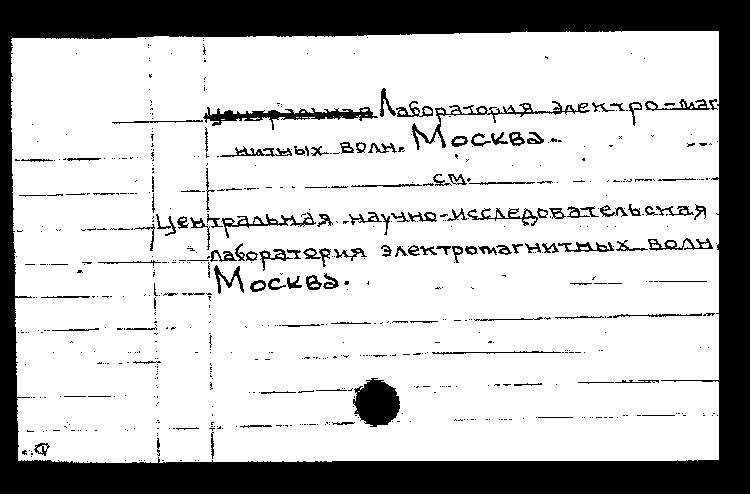 Центральная Лаборатория электро-маг-
нитных волн. Москва.
см.
Центральная научно-исследовательская
лаборатория электромагнитных волн.
Москва.